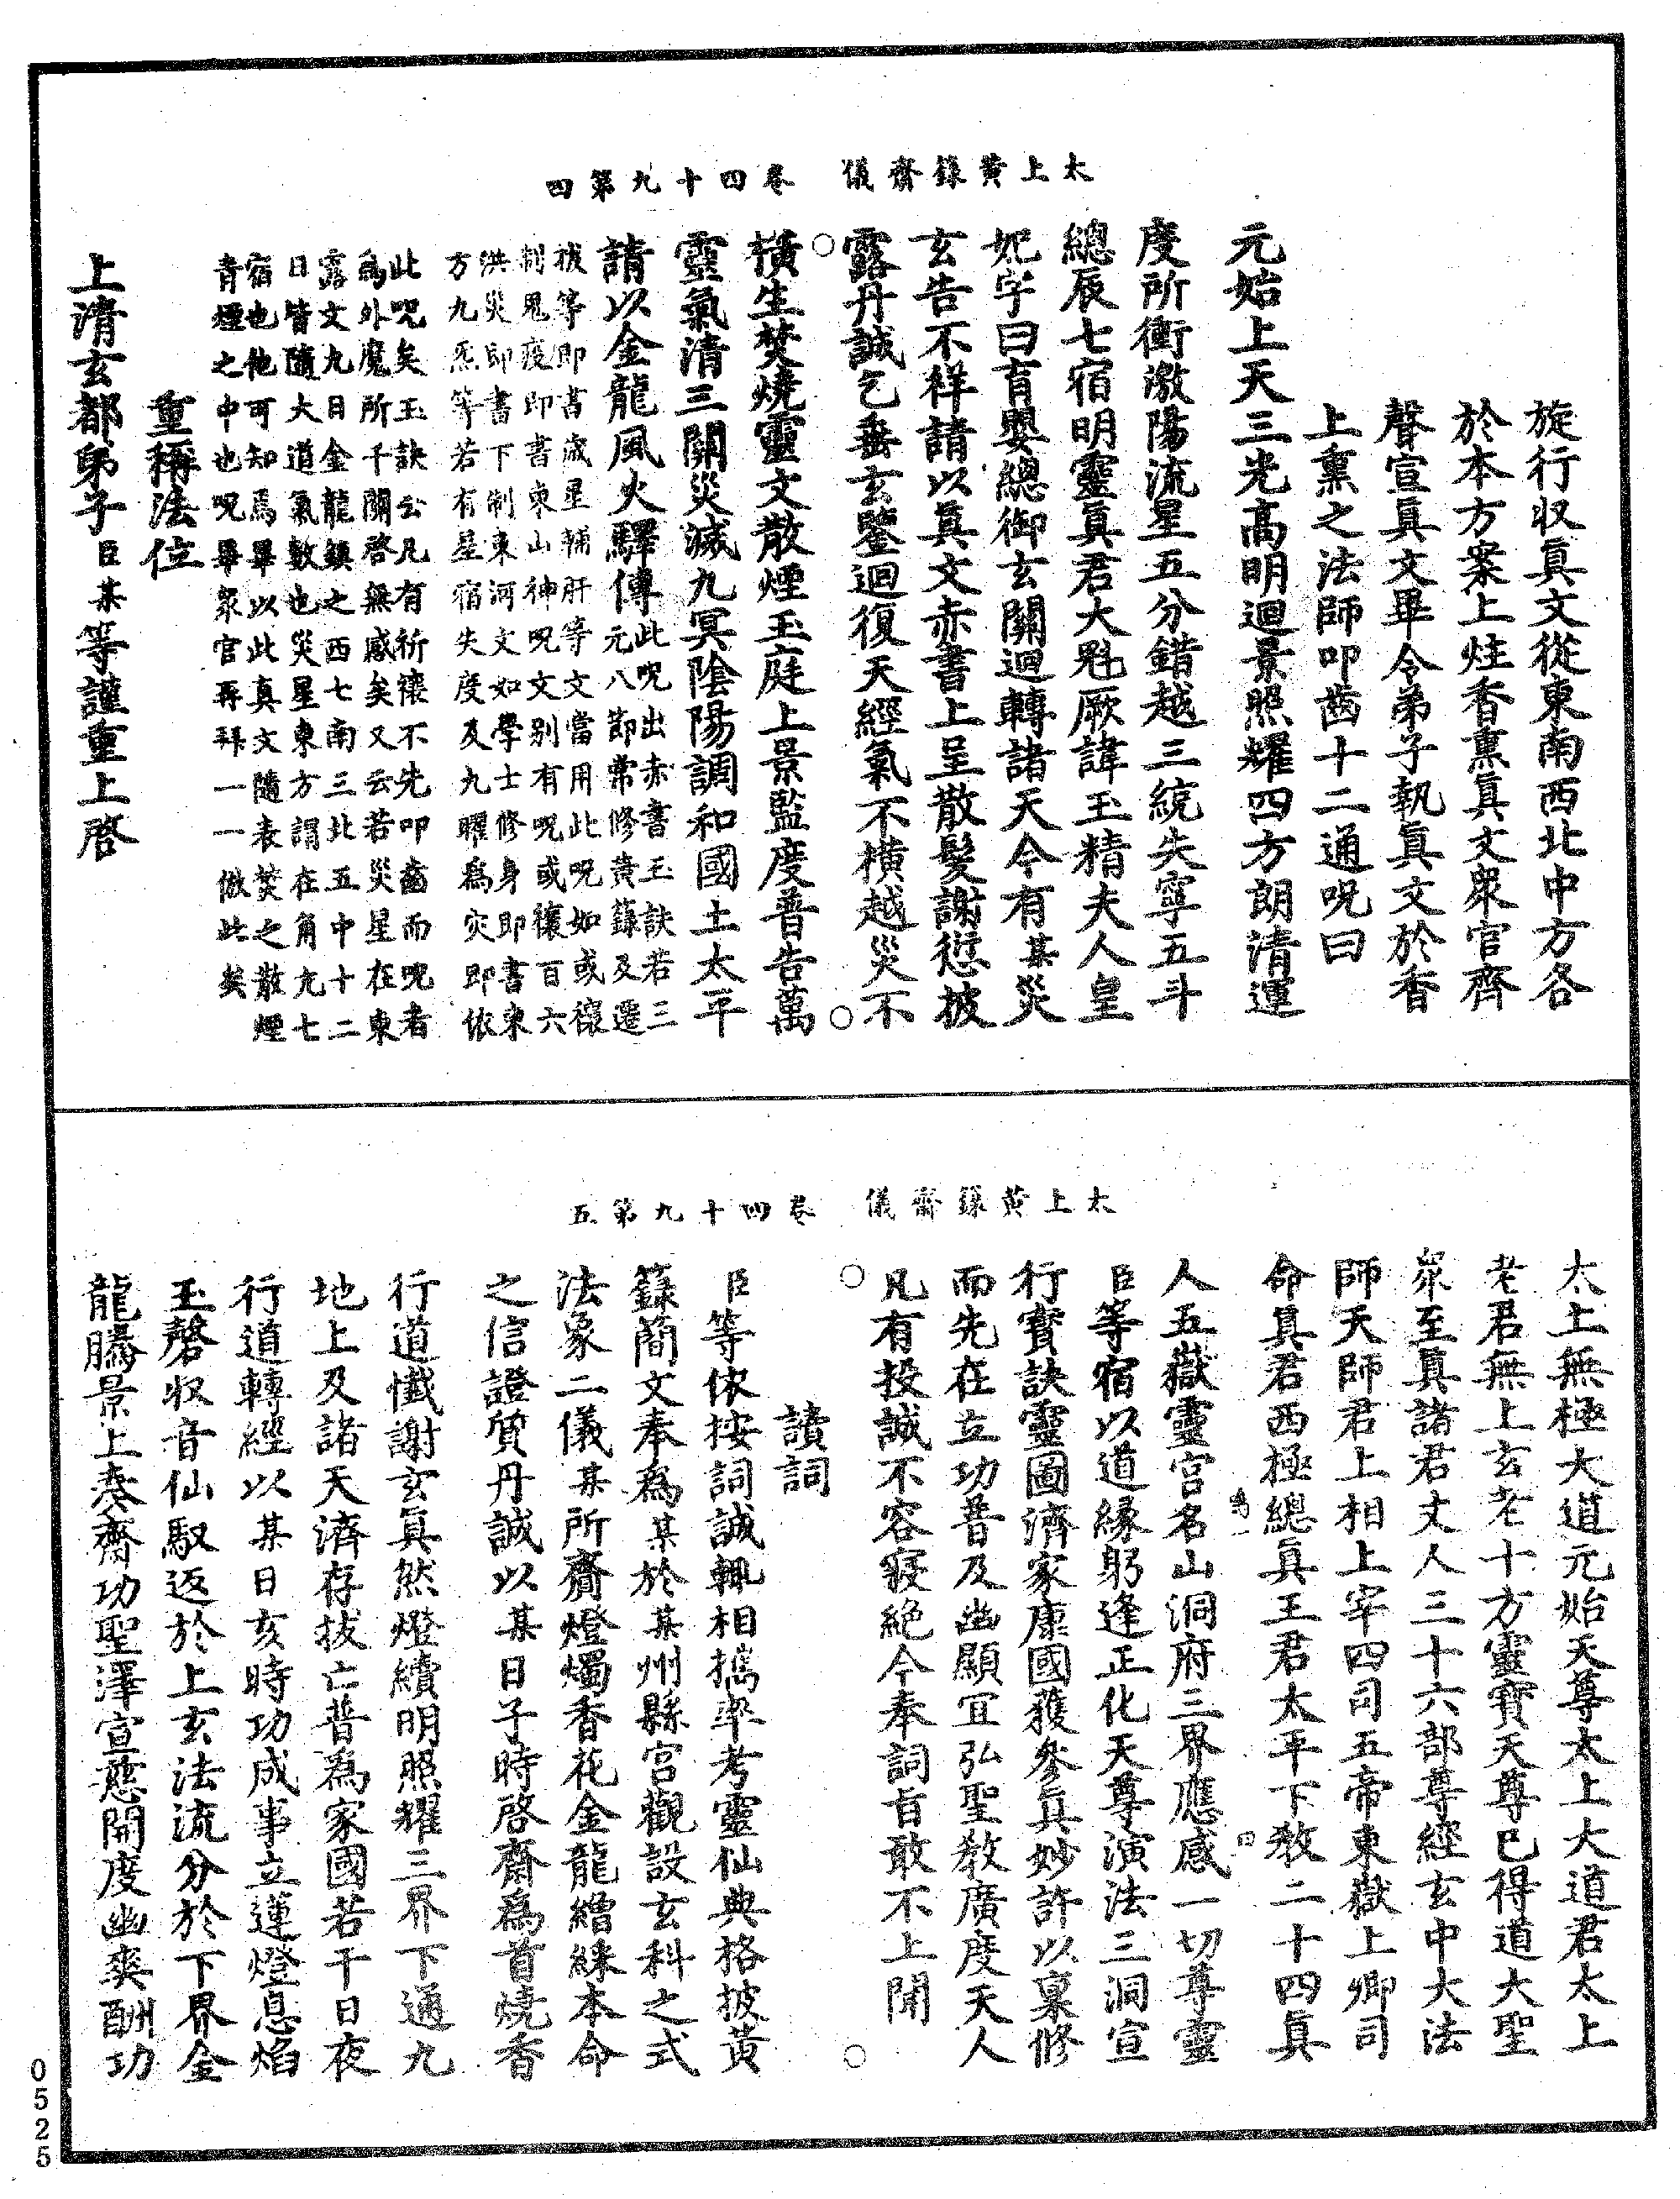 太上黃籙齋儀　卷四十九第四
旋行收眞文從東南西北中方各
於本方案上炷香熏眞文衆官齊
聲宣眞文畢令弟子執眞文於香
上熏之法師叩齒十二通呪曰
元始上天三光高明迴景照耀四方朗清運
度所衝激陽流星五分錯越三統失寧五斗
總辰七宿明靈眞君大魁厥諱玉精夫人皇
妃字曰育嬰總御玄關迴轉諸天今有某災
玄告不祥請以眞文赤書上呈散髮謝愆披
露丹誠乞垂玄鑒迴復天經氣不橫越災不
橫生焚燒靈文散煙玉庭上景監度普告萬
靈氣清三關災滅九冥陰陽調和國土太平
請以金龍風火驛傳此呪出赤書玉訣若三
元八節常修黃籙及遷
拔等即書歲星輔肝等文當用此呪如或禳
制鬼疫即書東山神呪文别有呪或禳百六
洪災即書下制東河文如學士修身即書東
方九炁等若有星宿失度及九曜爲灾即依
此呪矣玉訣云凡有祈禳不先叩齒而呪者
爲外魔所干關啓無感矣又云若災星在東
露文九日金龍鎮之西七南三北五中十二
日皆隨大道氣數也災星東方謂在角亢七
宿也他可知焉畢以此真文隨表焚之散煙
青煙之中也呪畢衆官再拜一一倣此矣
重稱法位
上清玄都弟子臣某等謹重上啓
太上黃籙齋儀　卷四十九第五
太上無極大道元始天尊太上大道君太上
老君無上玄老十方靈寶天尊已得道大聖
衆至眞諸君丈人三十六部尊經玄中大法
師天師君上相上宰四司五帝東嶽上卿司
命眞君西極總眞王君太平下教二十四眞
人五嶽靈宮名山洞府三界應感一切尊靈
臣等宿以道緣躬逢正化天尊演法三洞宣
行寶訣靈圖濟家康國獲參眞妙許以稟修
而先在立功普及幽顯宜弘聖教廣度天人
凡有投誠不容寢絶今奉詞旨敢不上聞
讀詞
臣等依按詞誠輒相擕率考靈仙典格披黃
籙蕳文奉爲某於某州縣宮觀設玄科之式
法象二儀某所齎燈燭香花金龍繒綵本命
之信證質丹誠以某日子時啓齋爲首燒香
行道懺謝玄眞然燈續明照耀三界下通九
地上及諸天濟存拔亡普爲家國若干日夜
行道轉經以某日亥時功成事立蓮燈息焰
玉磬收音仙馭返於上玄法流分於下界金
龍騰景上奏齋功聖澤宣慈開度幽爽酬功
0525